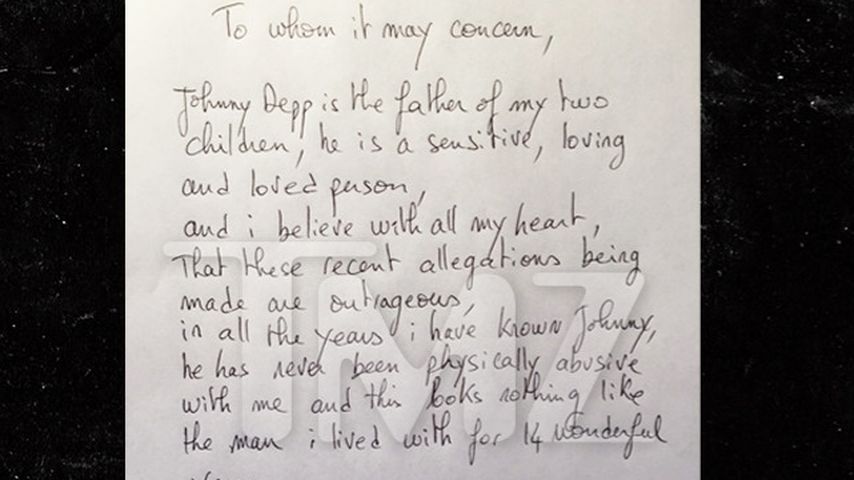 To whom it may concern,
Johnny Depp is the father of my two
children, he is a sensitive, loving
and loved person,
and i believe with all my heart,
That these recent allegations being
made are outrageous,
in all the years i have known Johnny,
he has never been physically abusive
with me and this looks nothing like
the man i lived with for 14 wonderful
TMZ